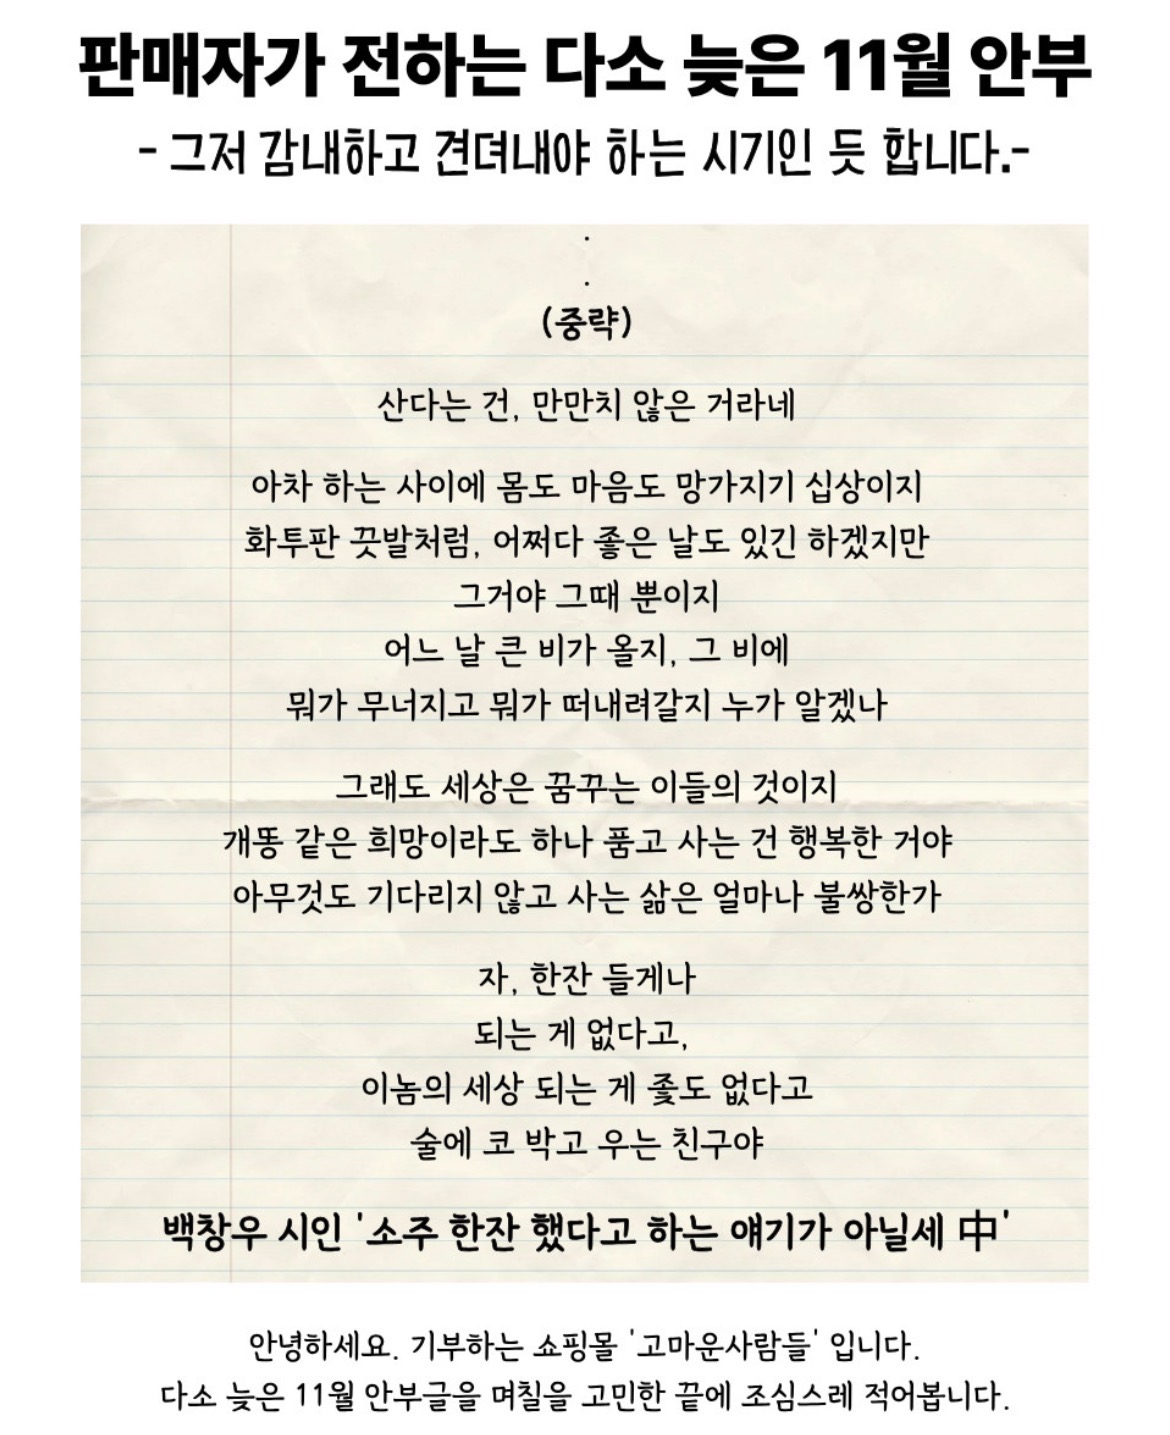 판매자가 전하는 다소 늦은 11월 안부
- 그저 감내하고 견뎌내야 하는 시기인 듯 합니다.-
.
.
(중략)
산다는 건, 만만치 않은 거라네
아차 하는 사이에 몸도 마음도 망가지기 십상이지
화투판 끗발처럼, 어쩌다 좋은 날도 있긴 하겠지만
그거야 그때 뿐이지
어느 날 큰 비가 올지, 그 비에
뭐가 무너지고 뭐가 떠내려갈지 누가 알겠나
그래도 세상은 꿈꾸는 이들의 것이지
개똥 같은 희망이라도 하나 품고 사는 건 행복한 거야
아무것도 기다리지 않고 사는 삶은 얼마나 불쌍한가
자, 한잔 들게나
되는 게 없다고,
이놈의 세상 되는 게 좆도 없다고
술에 코 박고 우는 친구야
백창우 시인 '소주 한잔 했다고 하는 얘기가 아닐세 中'
안녕하세요. 기부하는 쇼핑몰 '고마운사람들' 입니다.
다소 늦은 11월 안부글을 며칠을 고민한 끝에 조심스레 적어봅니다.